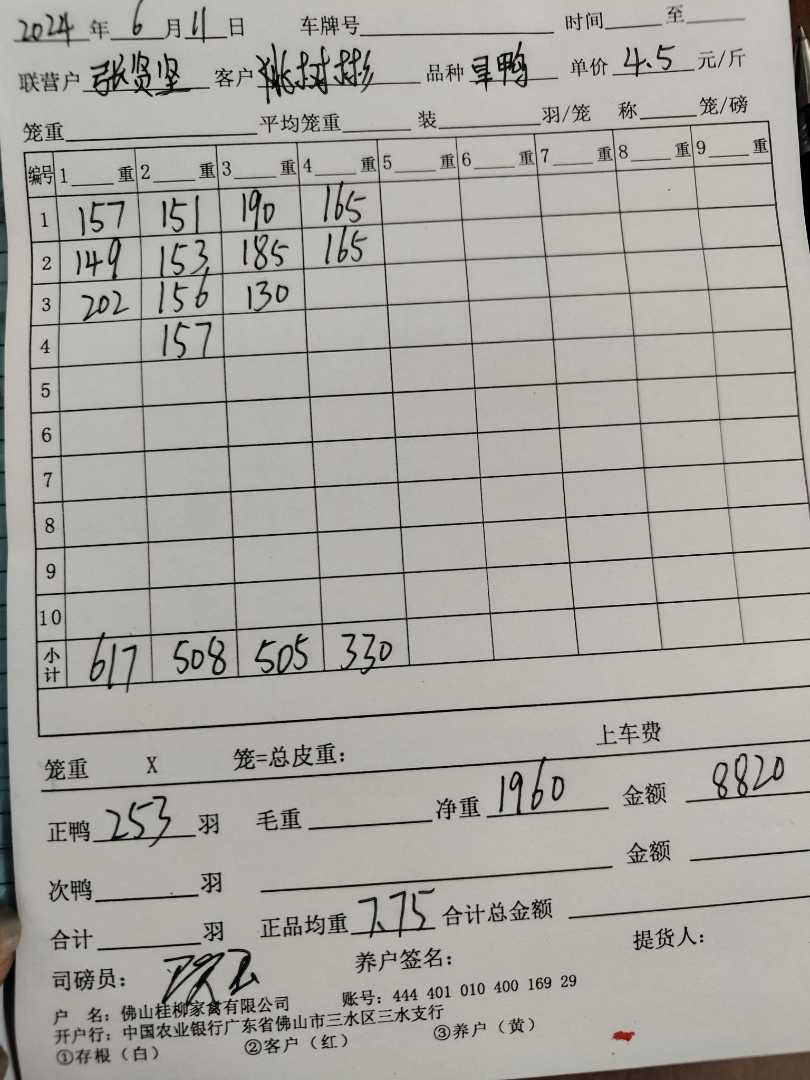 2024年 6 月 11 日 车牌号 时间 至
联营户 张贤坚 客户 姚树彬 品种 旱鸭 单价 4.5 元/斤
笼重 平均笼重 装 羽/笼 称 笼/磅
编号 1 重 2 重 3 重 4 重 5 重 6 重 7 重 8 重 9 重
1 157 151 190 165
2 149 153 185 165
3 202 156 130
4 157
5
6
7
8
9
10
小计 617 508 505 330
笼重 X 笼=总皮重: 上车费
正鸭 253 羽 毛重 净重 1960 金额 8820
次鸭 羽 金额
合计 羽 正品均重 7.75 合计总金额
司磅员: 养户签名: 提货人:
户 名: 佛山桂柳家禽有限公司 账号: 444 401 010 400 169 29
开户行: 中国农业银行广东省佛山市三水区三水支行
①存根（白） ②客户（红） ③养户（黄）